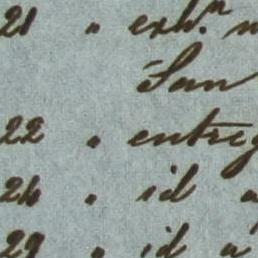 21 " exh.n
San
22 " entreg
24 " id a
29 " id a